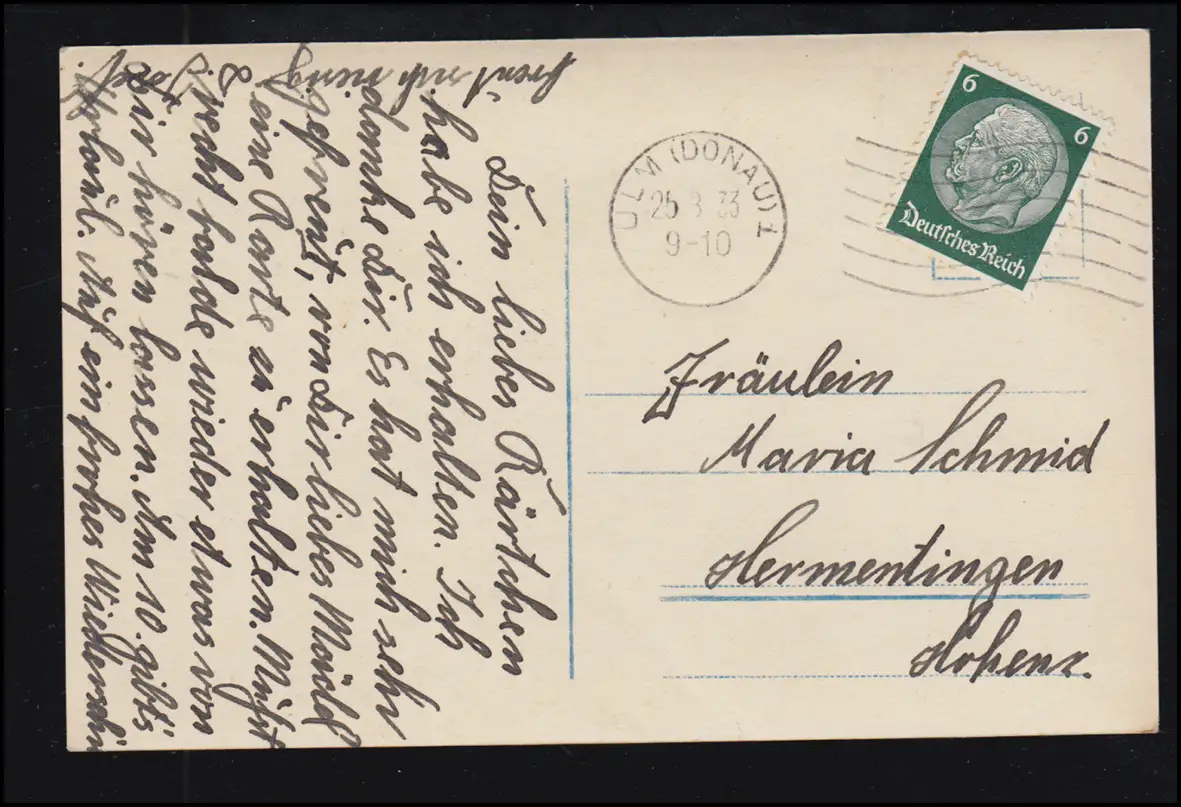 Dein liebes Kärtchen
habe ich erhalten. Ich
danke Dir. Es hat mich sehr
gefreut, von Dir liebes
eine Karte zu erhalten. Mußt
recht balde wieder etwas von
Dir hören lassen. Am 10. gibt's
Urlaub. Auf ein frohes Wiedersehn
ULM (DONAU) 1
25 8 33
9-10
6 6
Deutsches Reich
Fräulein
Maria Schmid
Hermentingen
Hohenz.